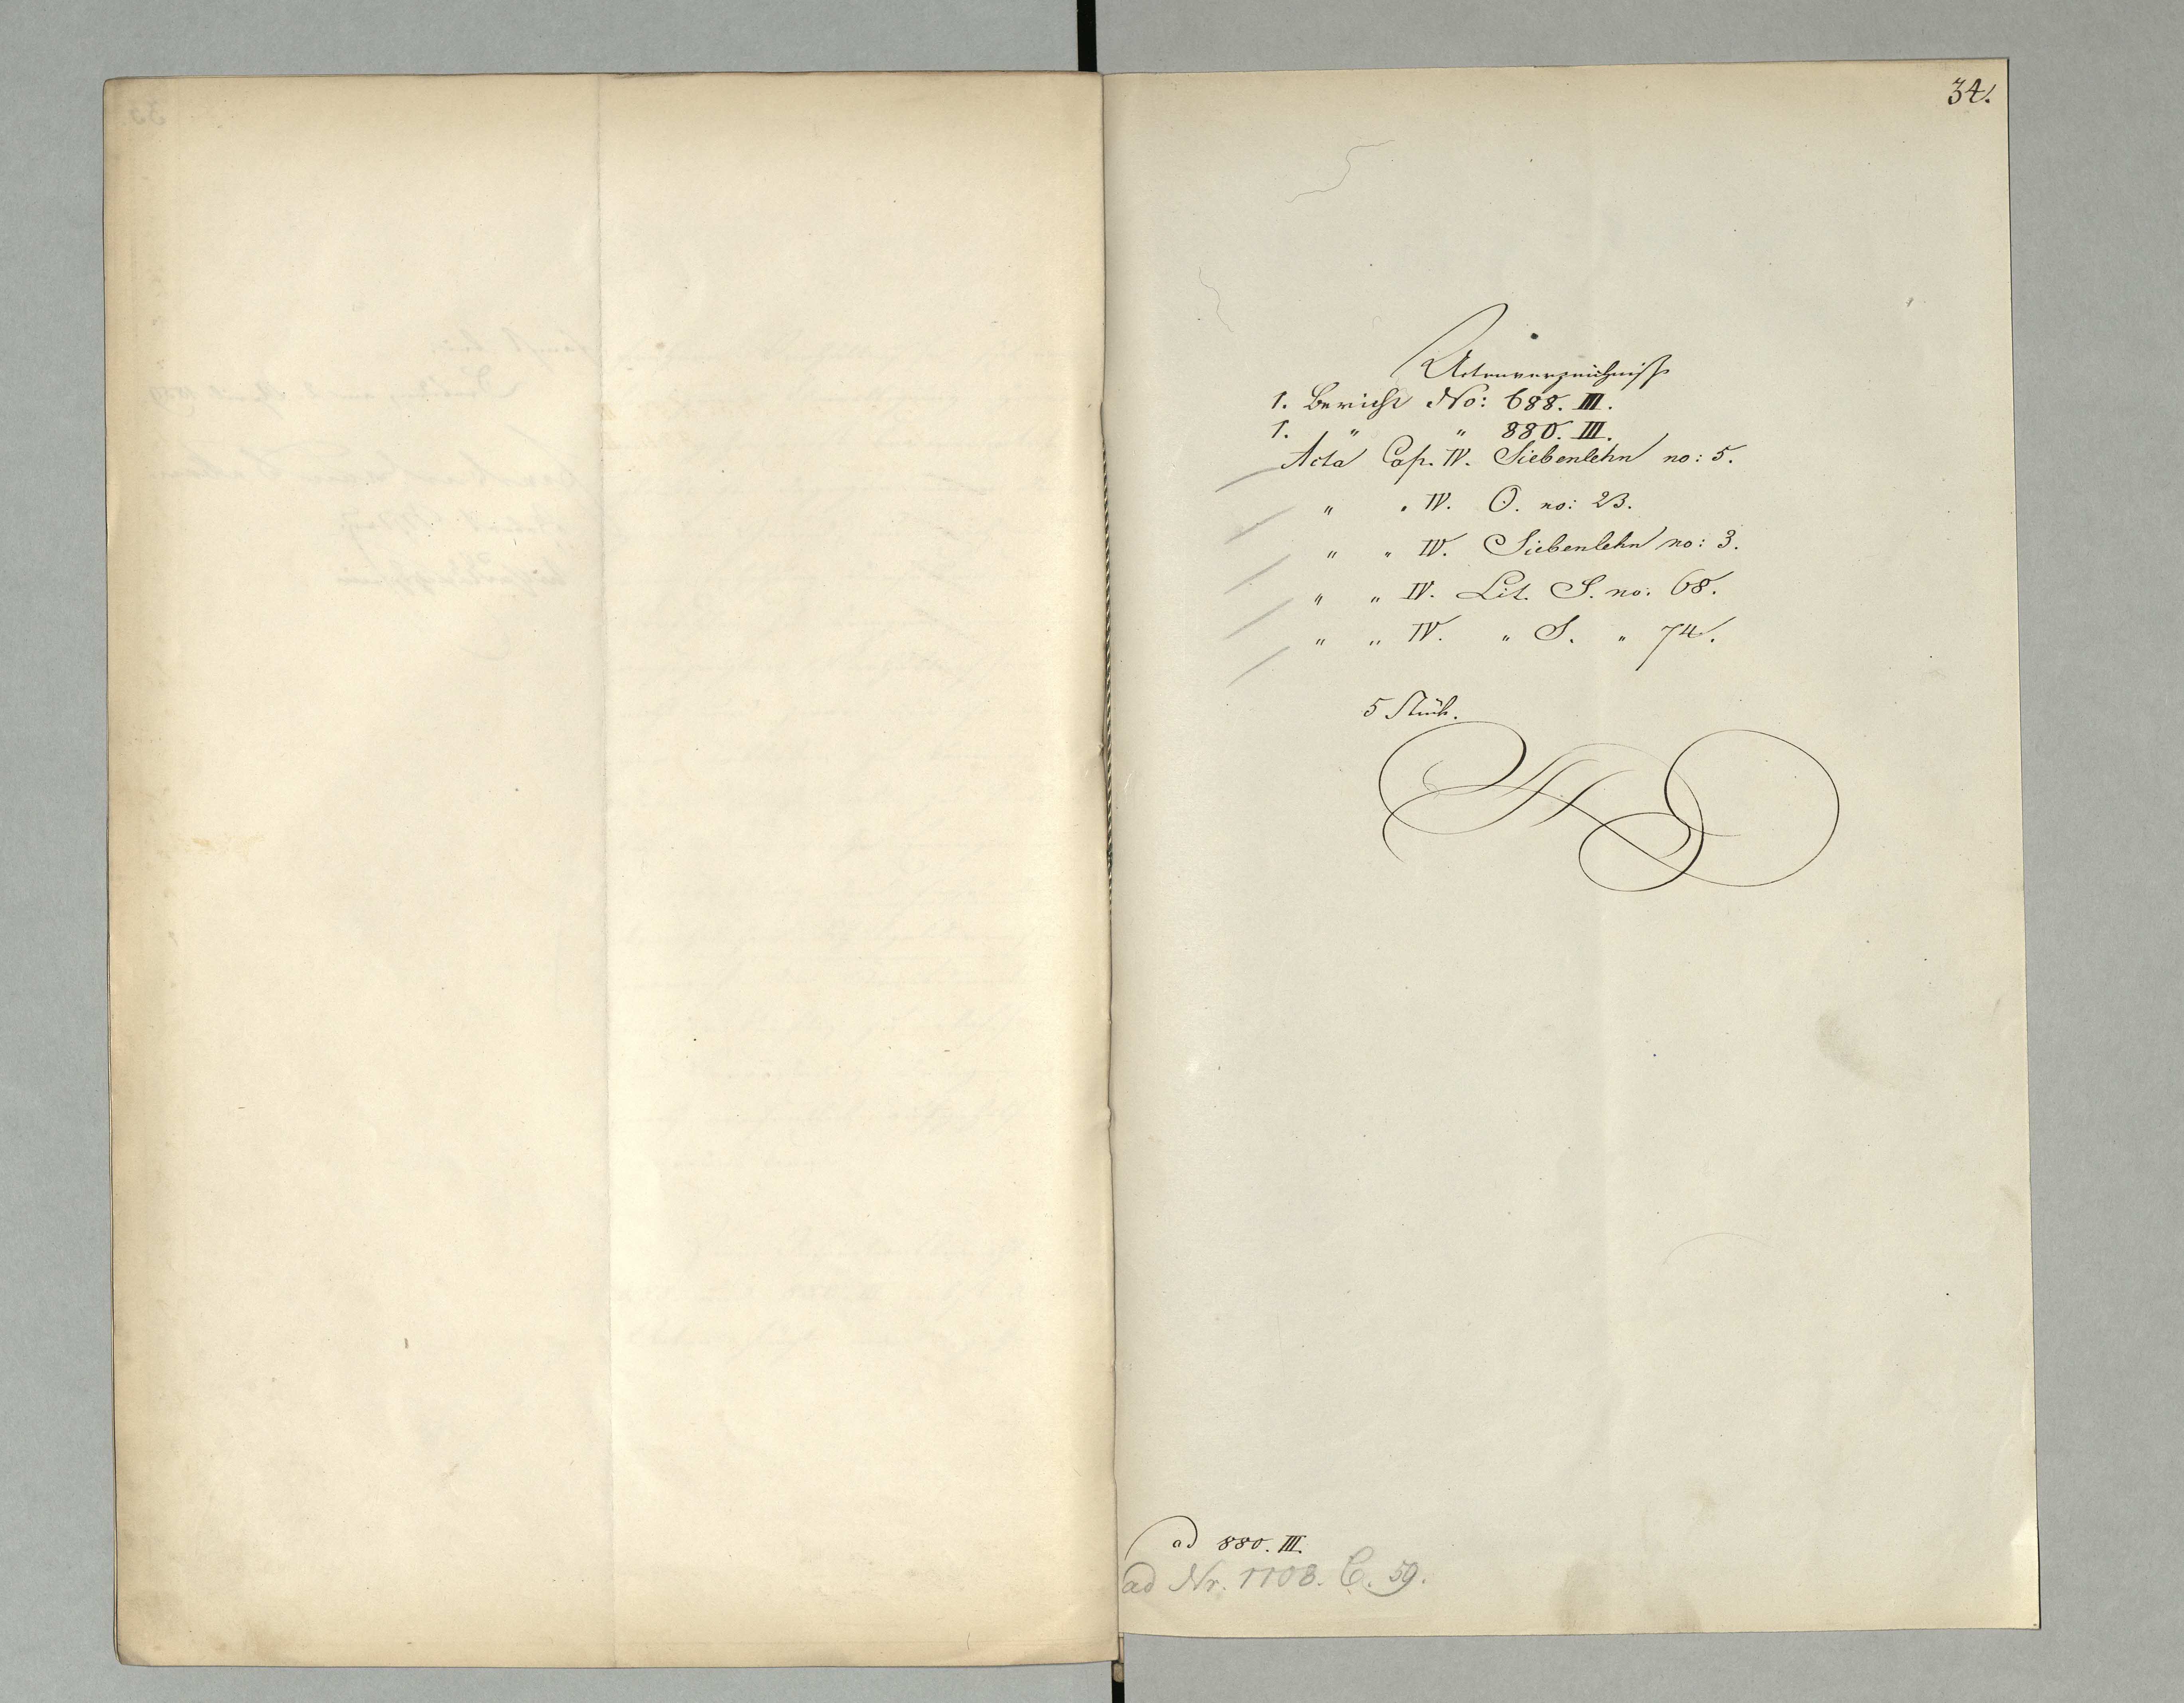 34.
Actenverzeichniß
1. Bericht No: 688. III.
1. " " 880. III.
Acta Cap. IV. Siebenlehn no: 5.
" " IV. O. no: 23.
" " IV. Siebenlehn no: 3.
" " IV. Lit. S. no: 68.
" " IV. " S. " 74.
5 Stück.
ad 880. III.
ad Nr. 1108. C. 59.